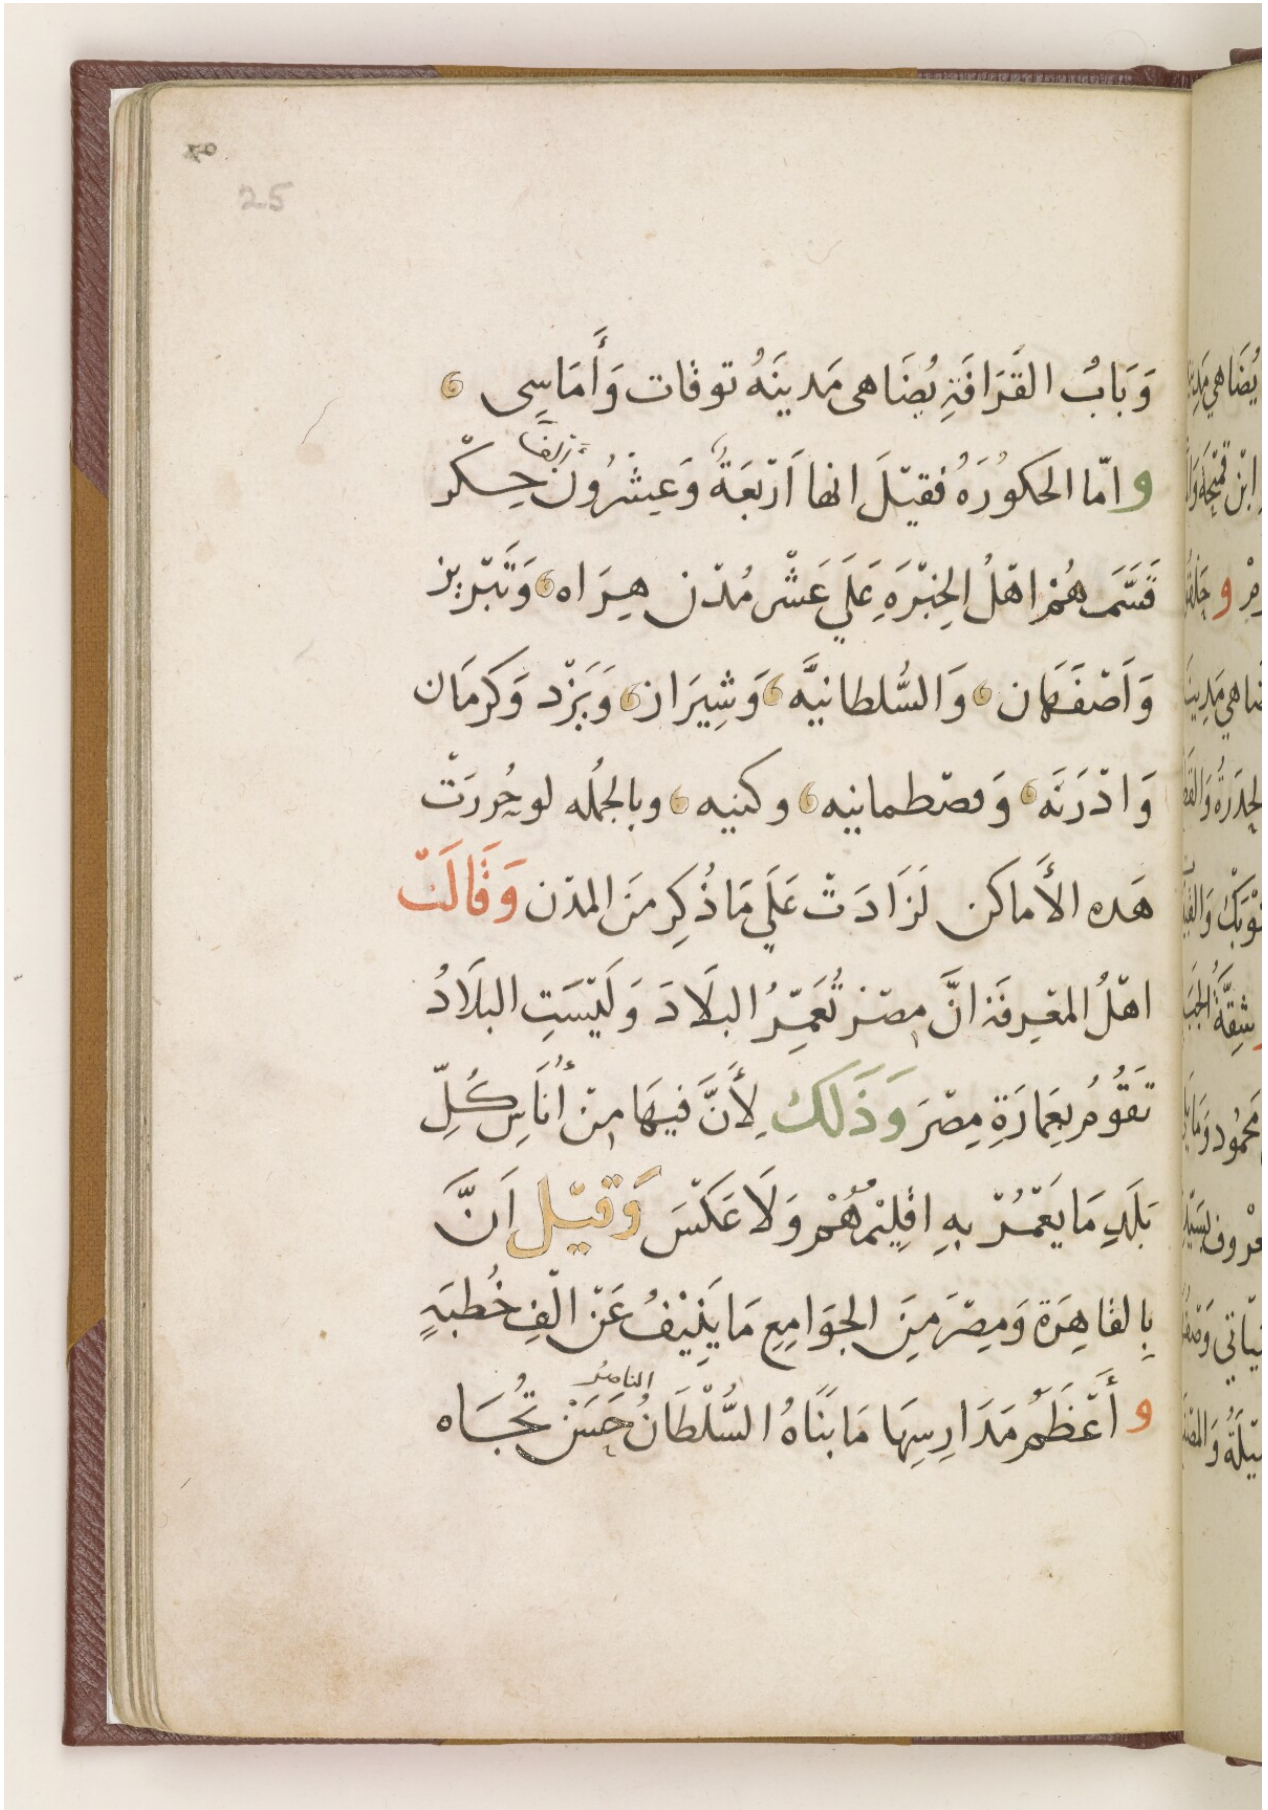 ٢٥
25
وَبَابُ القَرَافَةِ يُضَاهى مَدينَهُ توقات وَأَمَاسِى
وامّا الحكوُرَهُ فقيْلَ انها اَرْبَعَةُ وَعِشْرُونَ حِسكْر
قَسَّمَ هُمْ اهْلُ الخِبْرَهِ عَلَي عَشْر مُدْن هِرَاه وَتَبْريز
وَاَصْفَهَان وَالسُّلطانيَّه وَشِيرَاز وَيَزْد وَكرمَان
وَادْرَنَه وَقصْطمانيه وكنيه وبالجُمْله لو حُررَتْ
هَده الأَماكن لَزَادَتْ عَلَي مَا ذُكِر مَن المدْن وَقَالَتْ
اهْلُ المعْرِفَة انَّ مِصْرَ تُعَمِّرُ البلَادَ وَلَيْسَتِ البلَادُ
تَقُومُ بِعَمَارَةِ مِصْرَ وَذَلَكَ لِأَنَّ فيهَا مِنْ أُنَاسِ كُلِّ
بَلَدٍ مَا يَعْمُرْ بهِ اقِليْمُهُمْ وَلَا عَكْسَ وَقيْل اَنَّ
بِالقَاهِرَة وَمِصْرَ مَِنَ الجوَامِعِ مَا يَنِيْفُ عَنْ الْفِ خُطبَةٍ
الناصرُ
و أَعْظَمُ مَدَارِسِهَا مَا بَنَاهُ السُّلْطَانُ حَسَنْ تُجَاه